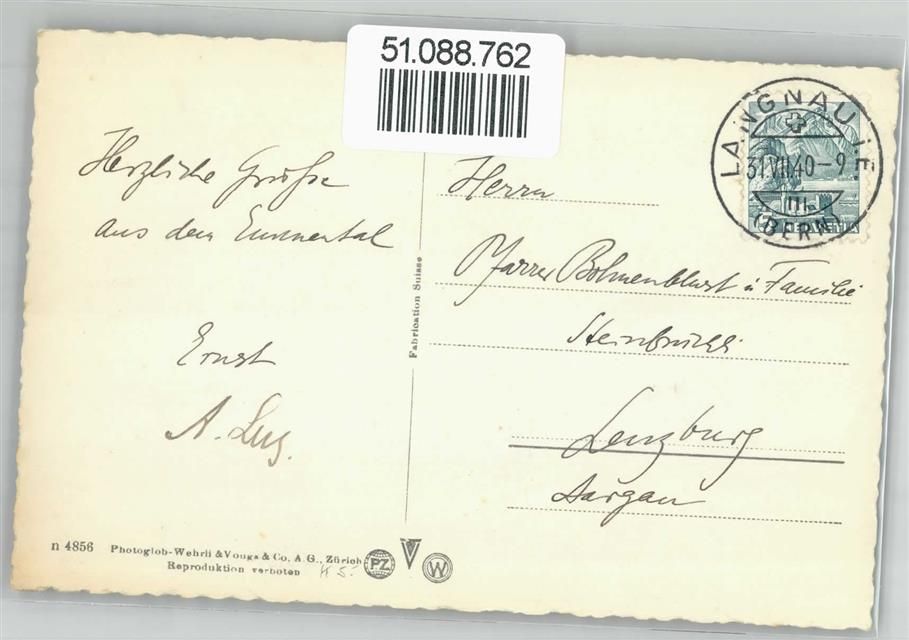 51.088.762
LANGNAU i.E.
31.VII.40-9
III
(BERN)
HELVETIA
Herzliche Grüsse
aus dem Emmental
Ernst
A.
Herrn
Pfarrer Bohnenblust u Familie
Steinbrüchli
Lenzburg
Aargau
Fabrication Suisse
n 4856
Photoglob-Wehrli & Vouga & Co. A.G., Zürich
Reproduktion verboten
PZ
V
W